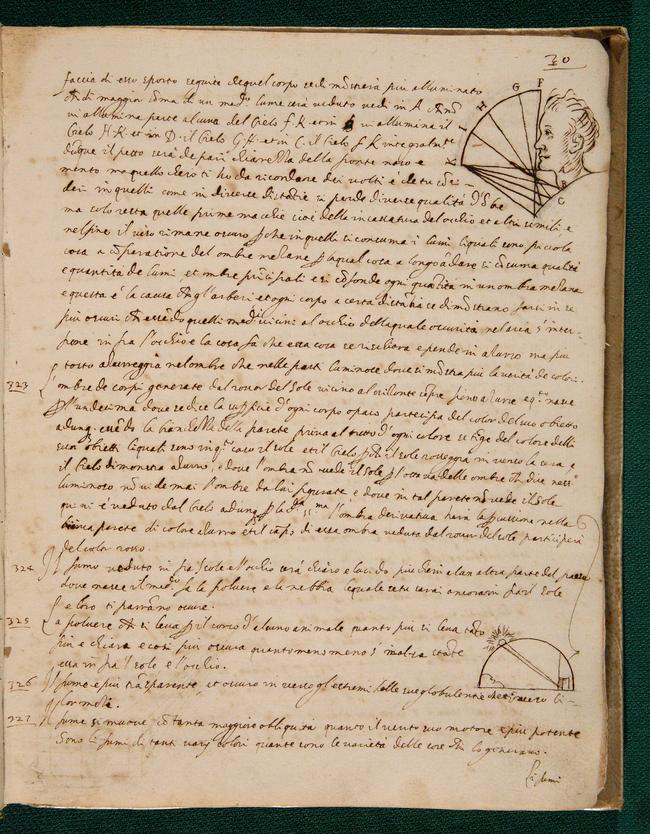 30
faccia di esso sporto seguite di quel corpo se di mostrerà più alluminato
di maggior soma di un med.º lume sarà veduto vedi in A
allumina parte alcuna del Cielo f. K. et in allumina il
Cielo H. K. et in D. il Cielo G H. et in C. il Cielo f K integralmte
dique il petto sarà de pari chiarezza della fronte naso e
mento ma quello che io ti ho da ricordare dei volti è che tu
deri in quelli come in diverse distantie si perde diverse qualità d'Ombre
ma solo resta quelle prime macchie cioè della incassatura del occhio et altri simili, e
nel fine il viso rimane oscuro che in quelli si consuma i lumi liquali sono piccola
cosa a comparatione del ombre mezane la qual cosa a longo andare si consuma qualità
e quantità de lumi, et ombre principali e si confonde ogni qualità in un ombra mezana
e questa è la causa che gl'arberi et ogni corpo a certa distantia se di mostrano farsi in se
più oscuri che essendo quelli med.mi vicini al occhio della quale oscurità nel aria s'inter-
pone in fra l'occhio e la cosa fa che essa cosa se rischiara e pende in azurro ma più
tosto azurreggia nel ombre che nelle parti luminose dove si mostra più la verità de colori.
323 L'ombre de corpi generate del rosor del Sole vicino al orizonte sempre fieno azurre e q.sto nasce
per l'undecima dove se dice la superfitie d'ogni corpo opaco partecipa del color del suo obietto
adunq. essendo la bianchezza della parete priva al tutto d'ogni colore se tinge del colore delli
suoi obietti liquali sono in q.sto caso il sole et il Cielo perchè il sole rosseggia in verso la sera e
il Cielo dimostra azurro, e dove l'ombra nõ vede il sole per l'ottava delle ombre che dice ness.º
luminoso nõ vide mai l'ombre da lui figurate e dove in tal parete nõ vede il sole
qui vi è veduto dal Cielo adunq. per la d.ª 11.ma l'ombra derivativa harà la percussione nella
bianca parete di colore azurro et il campo di essa ombra veduta del rosor del sole parteciperà
del color rosso.
324 Il fumo veduto in fra'l sole e l'occhio sarà chiaro e lucido più che in alcun altra parte del paese
dove nasce il med.º fa la polvere e la nebbia lequale se tu sarai ancora in fra'l Sole
e loro ti parrano oscure.
325 La polvere che si leva per il corso d'alcuno animale quanto più si leva tãto
più è chiara e così più oscura quanto meno s'inalza stante
essa in fra'l sole e l'occhio.
326 Il fumo è più trasparente, et oscuro in verso gli estremi delle sue globulentie che in verso li
lor mezi.
327 Il fumo si muove cõ tanta maggiore obliquità quanto il vento suo motore è più potente
Sono li fumi di tanti varij colori quante sono le varietà delle cose che lo generano.
Li fumi
F
G
H
K
B
C